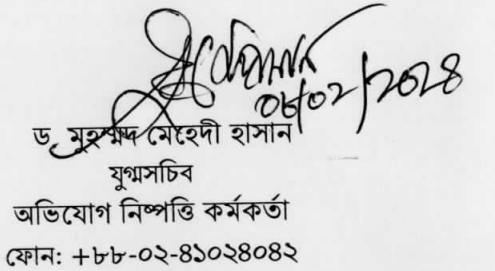 ০৮/০২/২০২৪
ড. মুহম্মদ মেহেদী হাসান
যুগ্মসচিব
অভিযোগ নিষ্পত্তি কর্মকর্তা
ফোন: +৮৮-০২-৪১০২৪০৪২